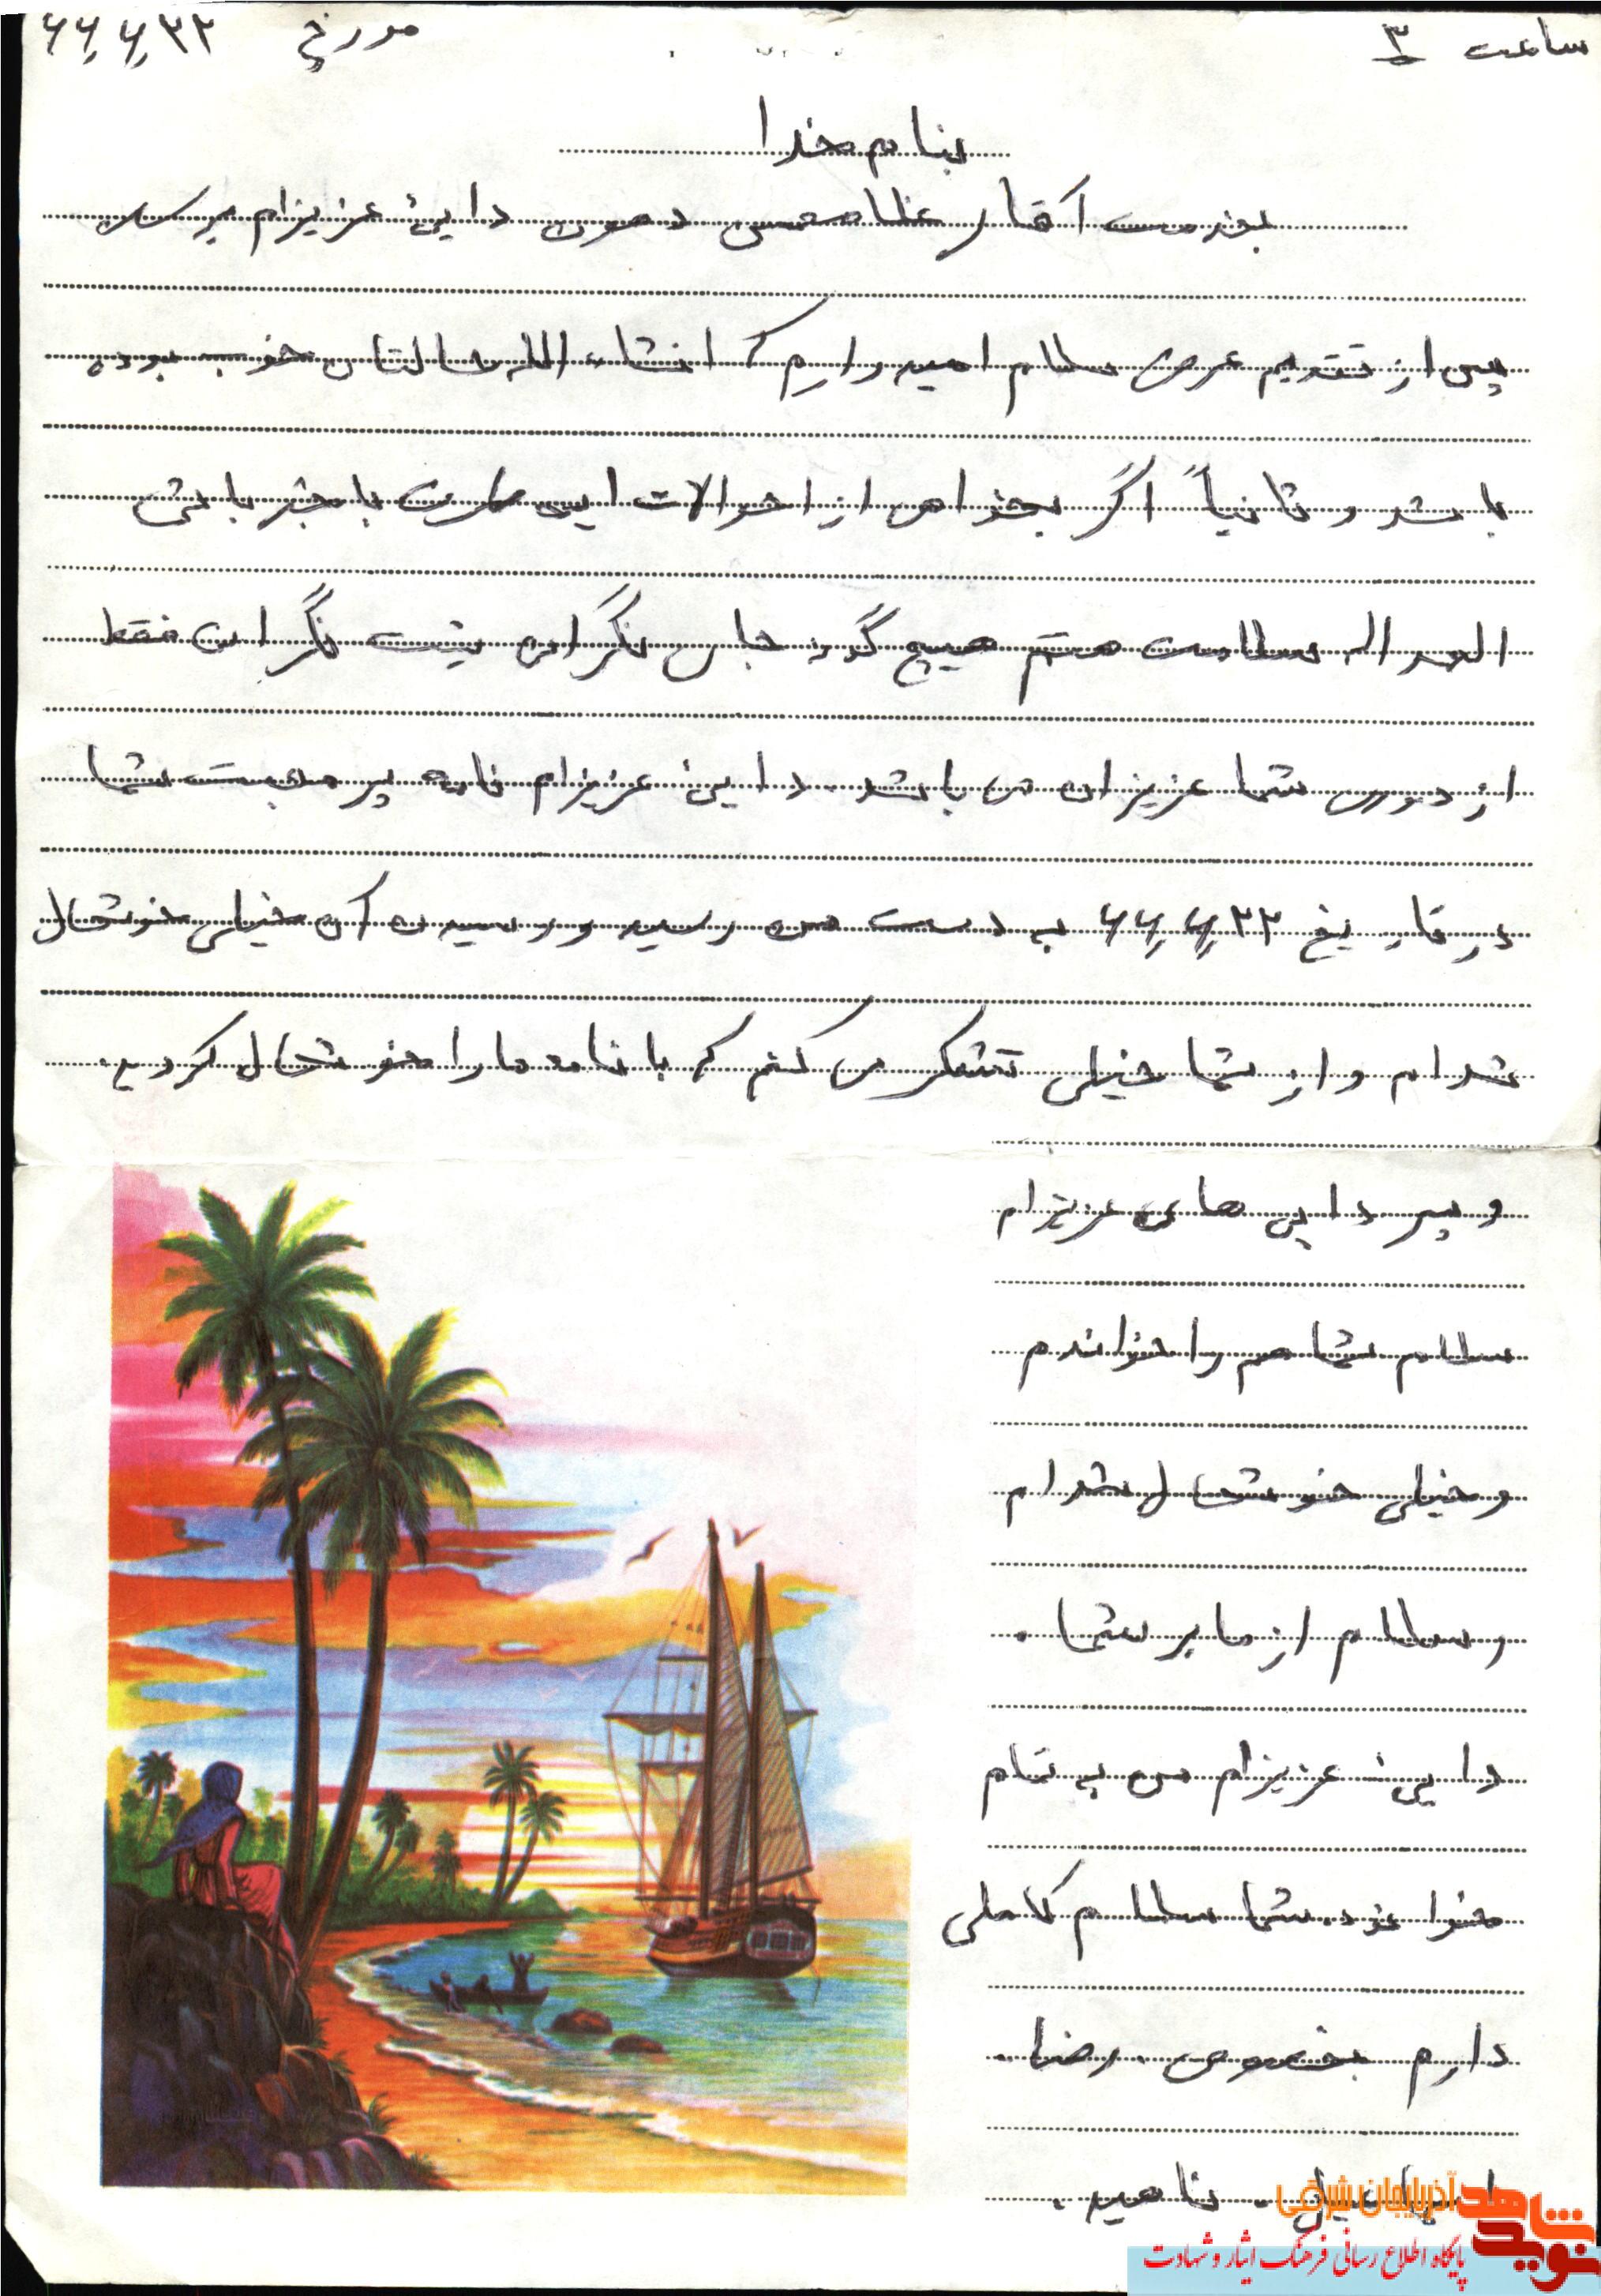 ساعت ۳
مورخ ۶۶٫۶٫۲۲
بنام خدا
بخدمت آقار غلامحسن دایئ عزیزام برسد
پس از تقدیم عرض سلام امیدوارم که انشاء الله حالتان خوب بوده
باشد و ثانیاً اگر بخواهی از احوالات این باخبر باشی
الحمد الله سلامت هستم هیچ گونه جای نگرانی نیست نگرانی فقط
از دوری شما عزیزان می باشد. دایئ عزیزام نامه پر محبت شما
در تاریخ ۶۶٫۶٫۲۲ به دست من رسید و رسیدن آن خیلی خوشحال
شدام و از شما خیلی تشکر می کنم که با نامه ما را خوشحال کردید.
و پسر دایی های عزیزام
سلام شما هم را خواندم
و خیلی خوشحال شدام
و سلام از ما بر شما.
دایئ عزیزام من به تمام
خوانود شما سلام کاملی
دارم بخصوص رضا.
اسماعیل. ناهید.
نوید شاهد آذربایجان شرقی
پایگاه اطلاع رسانی فرهنگ ایثار و شهادت